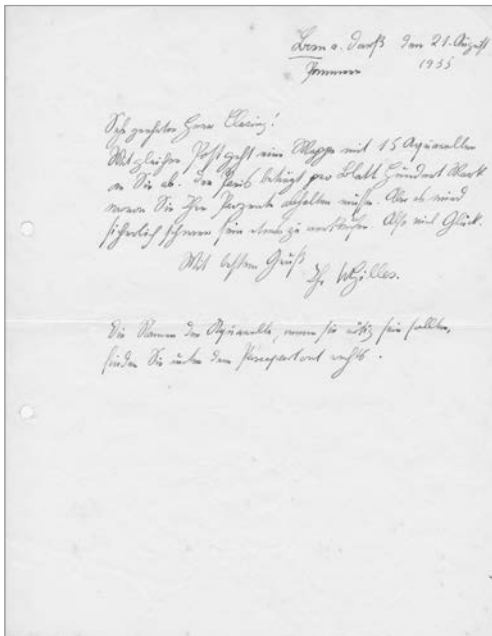 Born a. Darß den 21. August
Pommern 1935
Sehr geehrter Herr Clasing!
Mit gleicher Post geht eine Mappe mit 15 Aquarellen
an Sie ab. Der Preis beträgt pro Blatt Hundert Mark
wovon Sie Ihre Prozente abhalten müssen. Aber es wird
sicherlich schwer sein etwas zu verkaufen. Also viel Glück.
Mit bestem Gruß
Ihr WGilles.
Die Namen der Aquarelle, wenn sie nötig sein sollten,
finden Sie unter dem Passepartout rechts.